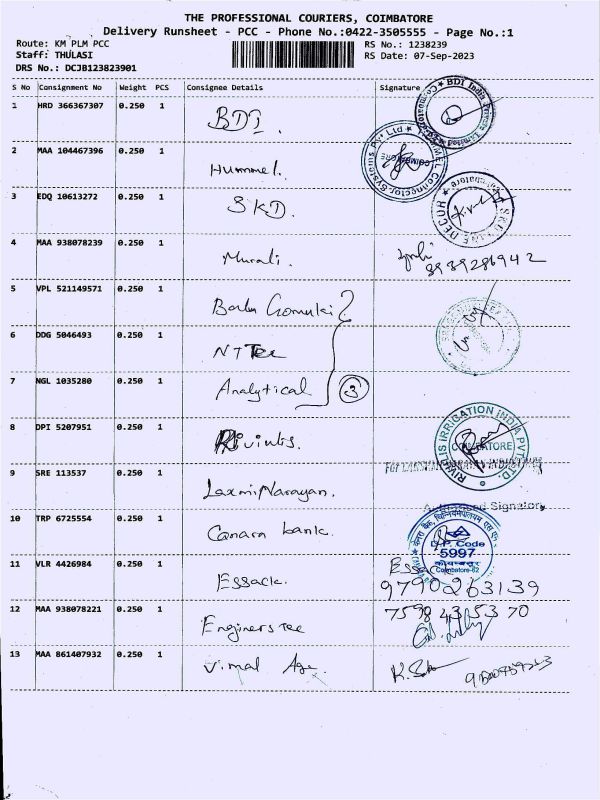 THE PROFESSIONAL COURIERS, COIMBATORE
Delivery Runsheet - PCC - Phone No.:0422-3505555 - Page No.:1
Route: KM PLM PCC RS No.: 1238239
Staff: THULASI RS Date: 07-Sep-2023
DRS No.: DCJB123823901
S No Consignment No Weight PCS Consignee Details Signature
1 HRD 366367307 0.250 1 BDI.
BDI India Private Limited
2 MAA 104467396 0.250 1 Hummel.
Connector Systems Pvt Ltd
COIMBATORE
3 EDQ 10613272 0.250 1 SKD.
4 MAA 938078239 0.250 1 Murali. 8939286942
5 VPL 521149571 0.250 1
6 DDG 5046493 0.250 1 NTTee
7 NGL 1035280 0.250 1 Analytical 3
8 DPI 5207951 0.250 1
RIVULIS IRRIGATION INDIA PVT. LTD.
COIMBATORE
9 SRE 113537 0.250 1 Laxmi Narayan.
Authorised Signatory
10 TRP 6725554 0.250 1 Canara bank.
D.P. Code
5997
कोयम्बत्तूर
Coimbatore-62
11 VLR 4426984 0.250 1 Essack. Essac
9790263139
12 MAA 938078221 0.250 1 Enginers tee 7598435370
13 MAA 861407932 0.250 1 Vimal Age.